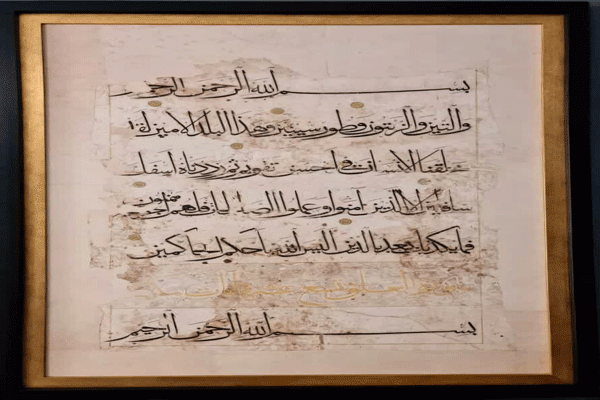 بسم الله الرحمن الرحيم
والتين والزيتون وطور سينين وهذا البلد الامين لقد
خلقنا الانسان في احسن تقويم ثم رددناه اسفل
سافلين الا الذين امنوا وعملوا الصالحات فلهم اجر غير ممنون
فما يكذبك بعد بالدين اليس الله باحكم الحاكمين
بسم الله الرحمن الرحيم